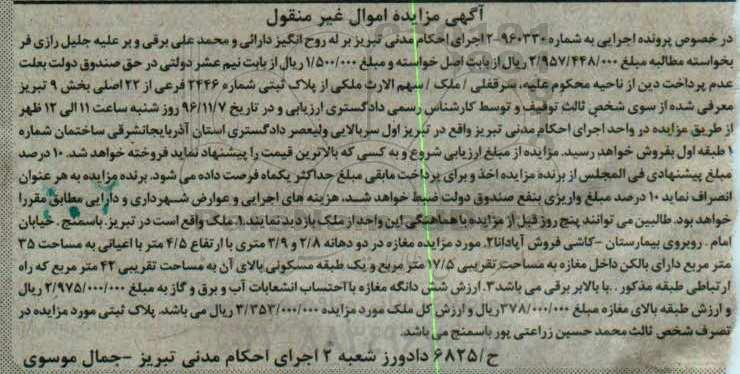 آگهی مزایده اموال غیر منقول
در خصوص پرونده اجرایی به شماره ۹۶۰۳۳۰-۲ اجرای احکام مدنی تبریز بر له روح انگیز دارائی و محمد علی برقی و بر علیه جلیل رازی فر
بخواسته مطالبه مبلغ ۲/۹۵۷/۴۴۸/۰۰۰ ریال از بابت اصل خواسته و مبلغ ۱/۵۰۰/۰۰۰ ریال از بابت نیم عشر دولتی در حق صندوق دولت بعلت
عدم پرداخت دین از ناحیه محکوم علیه، سرقفلی / ملک / سهم الارث ملکی از پلاک ثبتی شماره ۲۴۴۶ فرعی از ۲۲ اصلی بخش ۹ تبریز
معرفی شده از سوی شخص ثالث توقیف و توسط کارشناس رسمی دادگستری ارزیابی و در تاریخ ۹۶/۱۱/۷ روز شنبه ساعت ۱۱ الی ۱۲ ظهر
از طریق مزایده در واحد اجرای احکام مدنی تبریز واقع در تبریز اول سربالایی ولیعصر دادگستری استان آذربایجانشرقی ساختمان شماره
۱ طبقه اول بفروش خواهد رسید. مزایده از مبلغ ارزیابی شروع و به کسی که بالاترین قیمت را پیشنهاد نماید فروخته خواهد شد. ۱۰ درصد
مبلغ پیشنهادی فی المجلس از برنده مزایده اخذ و برای پرداخت مابقی مبلغ حداکثر یکماه فرصت داده می شود. برنده مزایده به هر عنوان
انصراف نماید ۱۰ درصد مبلغ واریزی بنفع صندوق دولت ضبط خواهد شد. هزینه های اجرایی و عوارض شهرداری و دارایی مطابق مقررا
خواهد بود. طالبین می توانند پنج روز قبل از مزایده با هماهنگی این واحد از ملک بازدید نمایند.۱. ملک واقع است در تبریز. باسمنج . خیابان
امام . روبروی بیمارستان -کاشی فروش آپادانا۲. مورد مزایده مغازه در دو دهانه ۲/۸ و ۲/۹ متری با ارتفاع ۴/۵ متر با اعیانی به مساحت ۳۵
متر مربع دارای بالکن داخل مغازه به مساحت تقریبی ۱۷/۵ متر مربع و یک طبقه مسکونی بالای آن به مساحت تقریبی ۴۲ متر مربع که راه
ارتباطی طبقه مذکور . .با بالابر برقی می باشد۳. ارزش شش دانگه مغازه با احتساب انشعابات آب و برق و گاز به مبلغ ۲/۹۷۵/۰۰۰/۰۰۰ ریال
و ارزش طبقه بالای مغازه مبلغ ۳۷۸/۰۰۰/۰۰۰ ریال و ارزش کل ملک مورد مزایده ۳/۳۵۳/۰۰۰/۰۰۰ ریال می باشد. پلاک ثبتی مورد مزایده در
تصرف شخص ثالث محمد حسین زراعتی پور باسمنج می باشد.
ح/۶۸۲۵ دادورز شعبه ۲ اجرای احکام مدنی تبریز -جمال موسوی